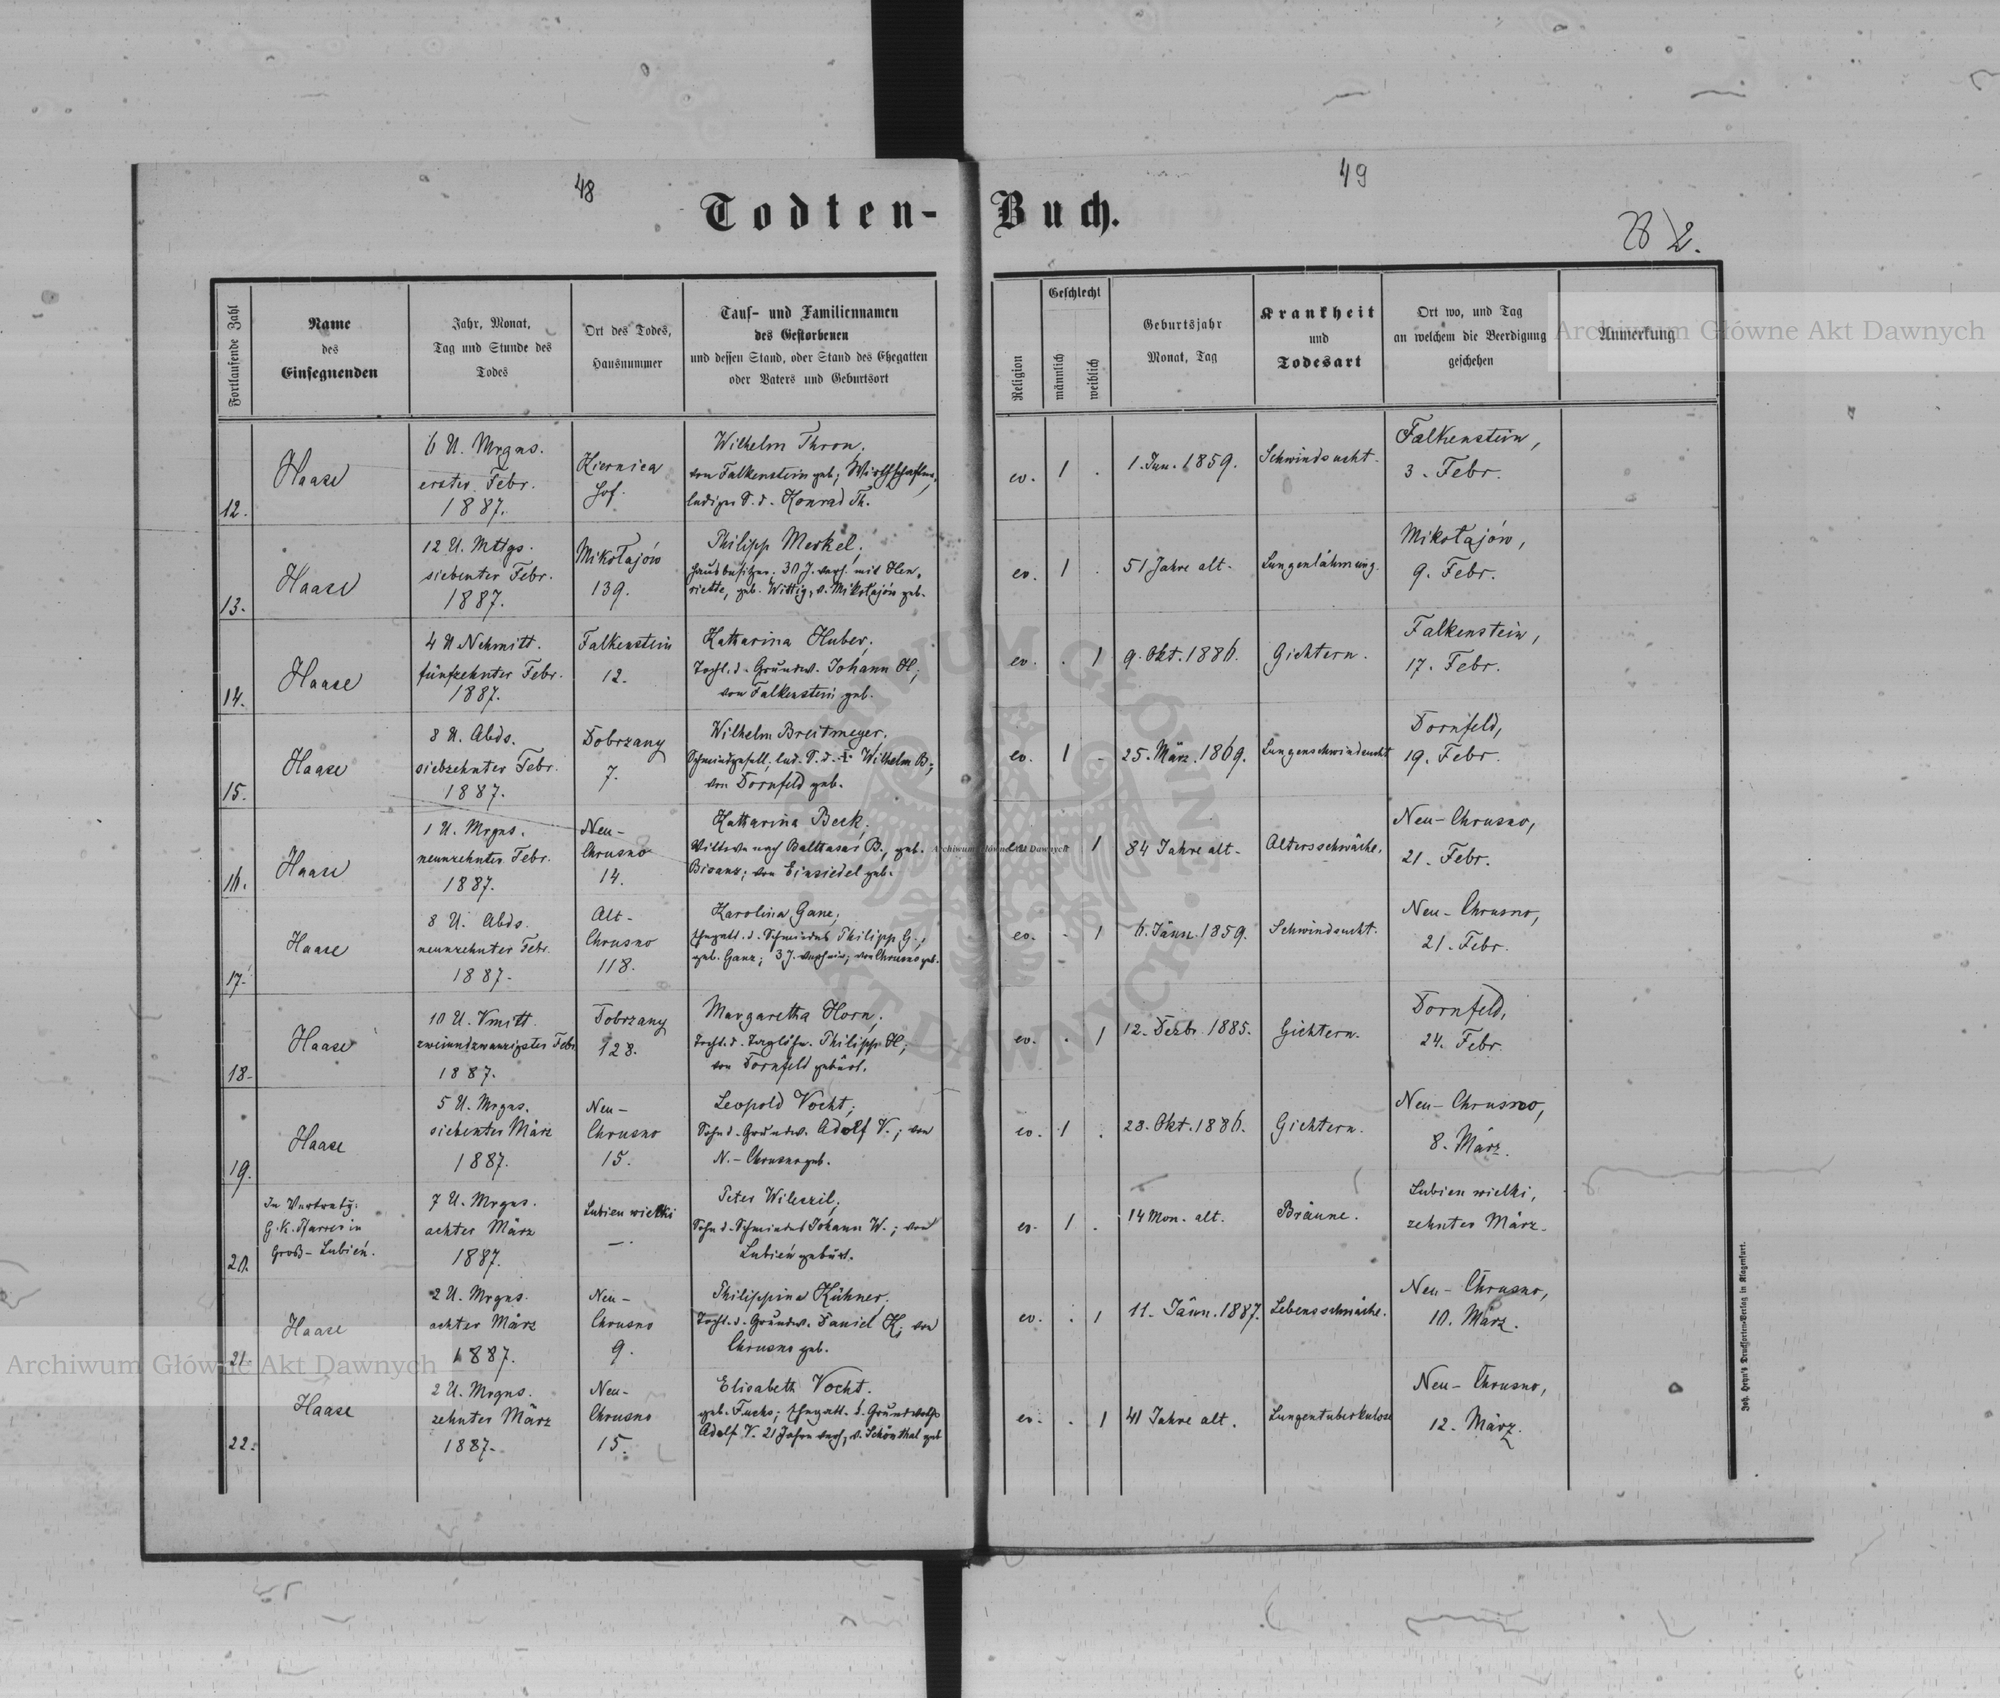 48
49
Todten-Buch.
Fortlaufende Zahl
Name
des
Einsegnenden
Jahr, Monat,
Tag und Stunde des
Todes
Ort des Todes,
Hausnummer
Tauf- und Familiennamen
des Gestorbenen
und dessen Stand, oder Stand des Ehegatten
oder Vaters und Geburtsort
Religion
Geschlecht
männlich
weiblich
Geburtsjahr
Monat, Tag
Krankheit
und
Todesart
Ort wo, und Tag
an welchem die Beerdigung
geschehen
Anmerkung
Archiwum Główne Akt Dawnych
12.
Haase
6 U. Mrgns.
erster Febr.
1887.
Kiernica
Hof.
Wilhelm Thron,
von Falkenstein geb;
lediger S. d. Konrad Th.
ev. 1 .
1. Jun. 1859.
Schwindsucht.
Falkenstein,
3. Febr.
13.
Haase
12 U. Mttgs.
siebenter Febr.
1887.
Mikołajów
139.
Philipp Merkel,
Hausbesitzer. 30 J. verh. mit Hen-
riette, geb. Wittig, v. Mikołajów geb.
ev. 1 .
51 Jahre alt.
Lungenlähmung.
Mikołajów,
9. Febr.
14.
Haase
4 U Nchmitt.
fünfzehnter Febr.
1887.
Falkenstein
12.
Katharina Huber,
Tocht. d. Grundw. Johann H;
von Falkenstein geb.
ev. . 1
9. Okt. 1886.
Gichtern.
Falkenstein,
17. Febr.
15.
Haase
8 U. Abds.
siebzehnter Febr.
1887.
Dobrzany
7.
Wilhelm Breitmeyer,
Schmiedgesell, led. S. d. Wilhelm B;
von Dornfeld geb.
ev. 1 .
25. März. 1869.
Lungenschwindsucht
Dornfeld,
19. Febr.
16.
Haase
1 U. Mrgns.
neunzehnter Febr.
1887.
Neu-
Chrusno
14.
Katharina Beck,
Wittwe nach Balthasar B., geb.
Bisanz; von Einsiedel geb.
Archiwum Główne Akt Dawnych
1
84 Jahre alt.
Altersschwäche.
Neu-Chrusno,
21. Febr.
17.
Haase
8 U. Abds.
neunzehnter Febr.
1887.
Alt-
Chrusno
118.
Karolina Ganz,
Ehegatt. d. Schmiedes Philipp G.,
geb. Ganz; 3 J. von Chrusno geb.
ev. . 1
6. Jänn. 1859.
Schwindsucht.
Neu-Chrusno,
21. Febr.
18.
Haase
10 U. Vmitt.
zweiundzwanzigster Febr
1887.
Dobrzany
128.
Margaretha Horn,
Tocht. d. Taglöhn. Philipp H;
von Dornfeld gebürt.
ev. . 1
12. Dezbr. 1885.
Gichtern.
Dornfeld,
24. Febr.
19.
Haase
5 U. Mrgns.
siebenter März
1887.
Neu-
Chrusno
15.
Leopold Vocht;
Sohn d. Grundw. Adolf V.; von
N.-Chrusno geb.
ev. 1 .
28. Okt. 1886.
Gichtern.
Neu-Chrusno,
8. März.
20.
In
G. K. Pfarrer in
Groß-Lubień.
7 U. Mrgns.
achter März
1887.
Lubien wielki
—.
Peter
Sohn d. Schmiedes Johann W.; von
Lubień gebürt.
ev. 1 .
14 Mon. alt.
Bräune.
Lubien wielki,
zehnter März.
21.
Haase
2 U. Mrgns.
achter März
1887.
Neu-
Chrusno
9.
Philippina Kühner,
Tocht. d. Grundw. Daniel K; von
Chrusno geb.
ev. . 1
11. Jänn. 1887.
Lebensschwäche.
Neu-Chrusno,
10. März.
22.
Haase
2 U. Mrgns.
zehnter März
1887.
Neu-
Chrusno
15.
Elisabeth Vocht.
geb. Fuchs; Ehegatt. d. Grundwths
Adolf V. 21 Jahre verh, v. Schönthal geb
ev. . 1
41 Jahre alt.
Lungentuberkulose
Neu-Chrusno,
12. März.
Archiwum Główne Akt Dawnych
Joh. Heyn's Drucksorten-Verlag in Klagenfurt.
ARCHIWUM GŁÓWNE AKT DAWNYCH